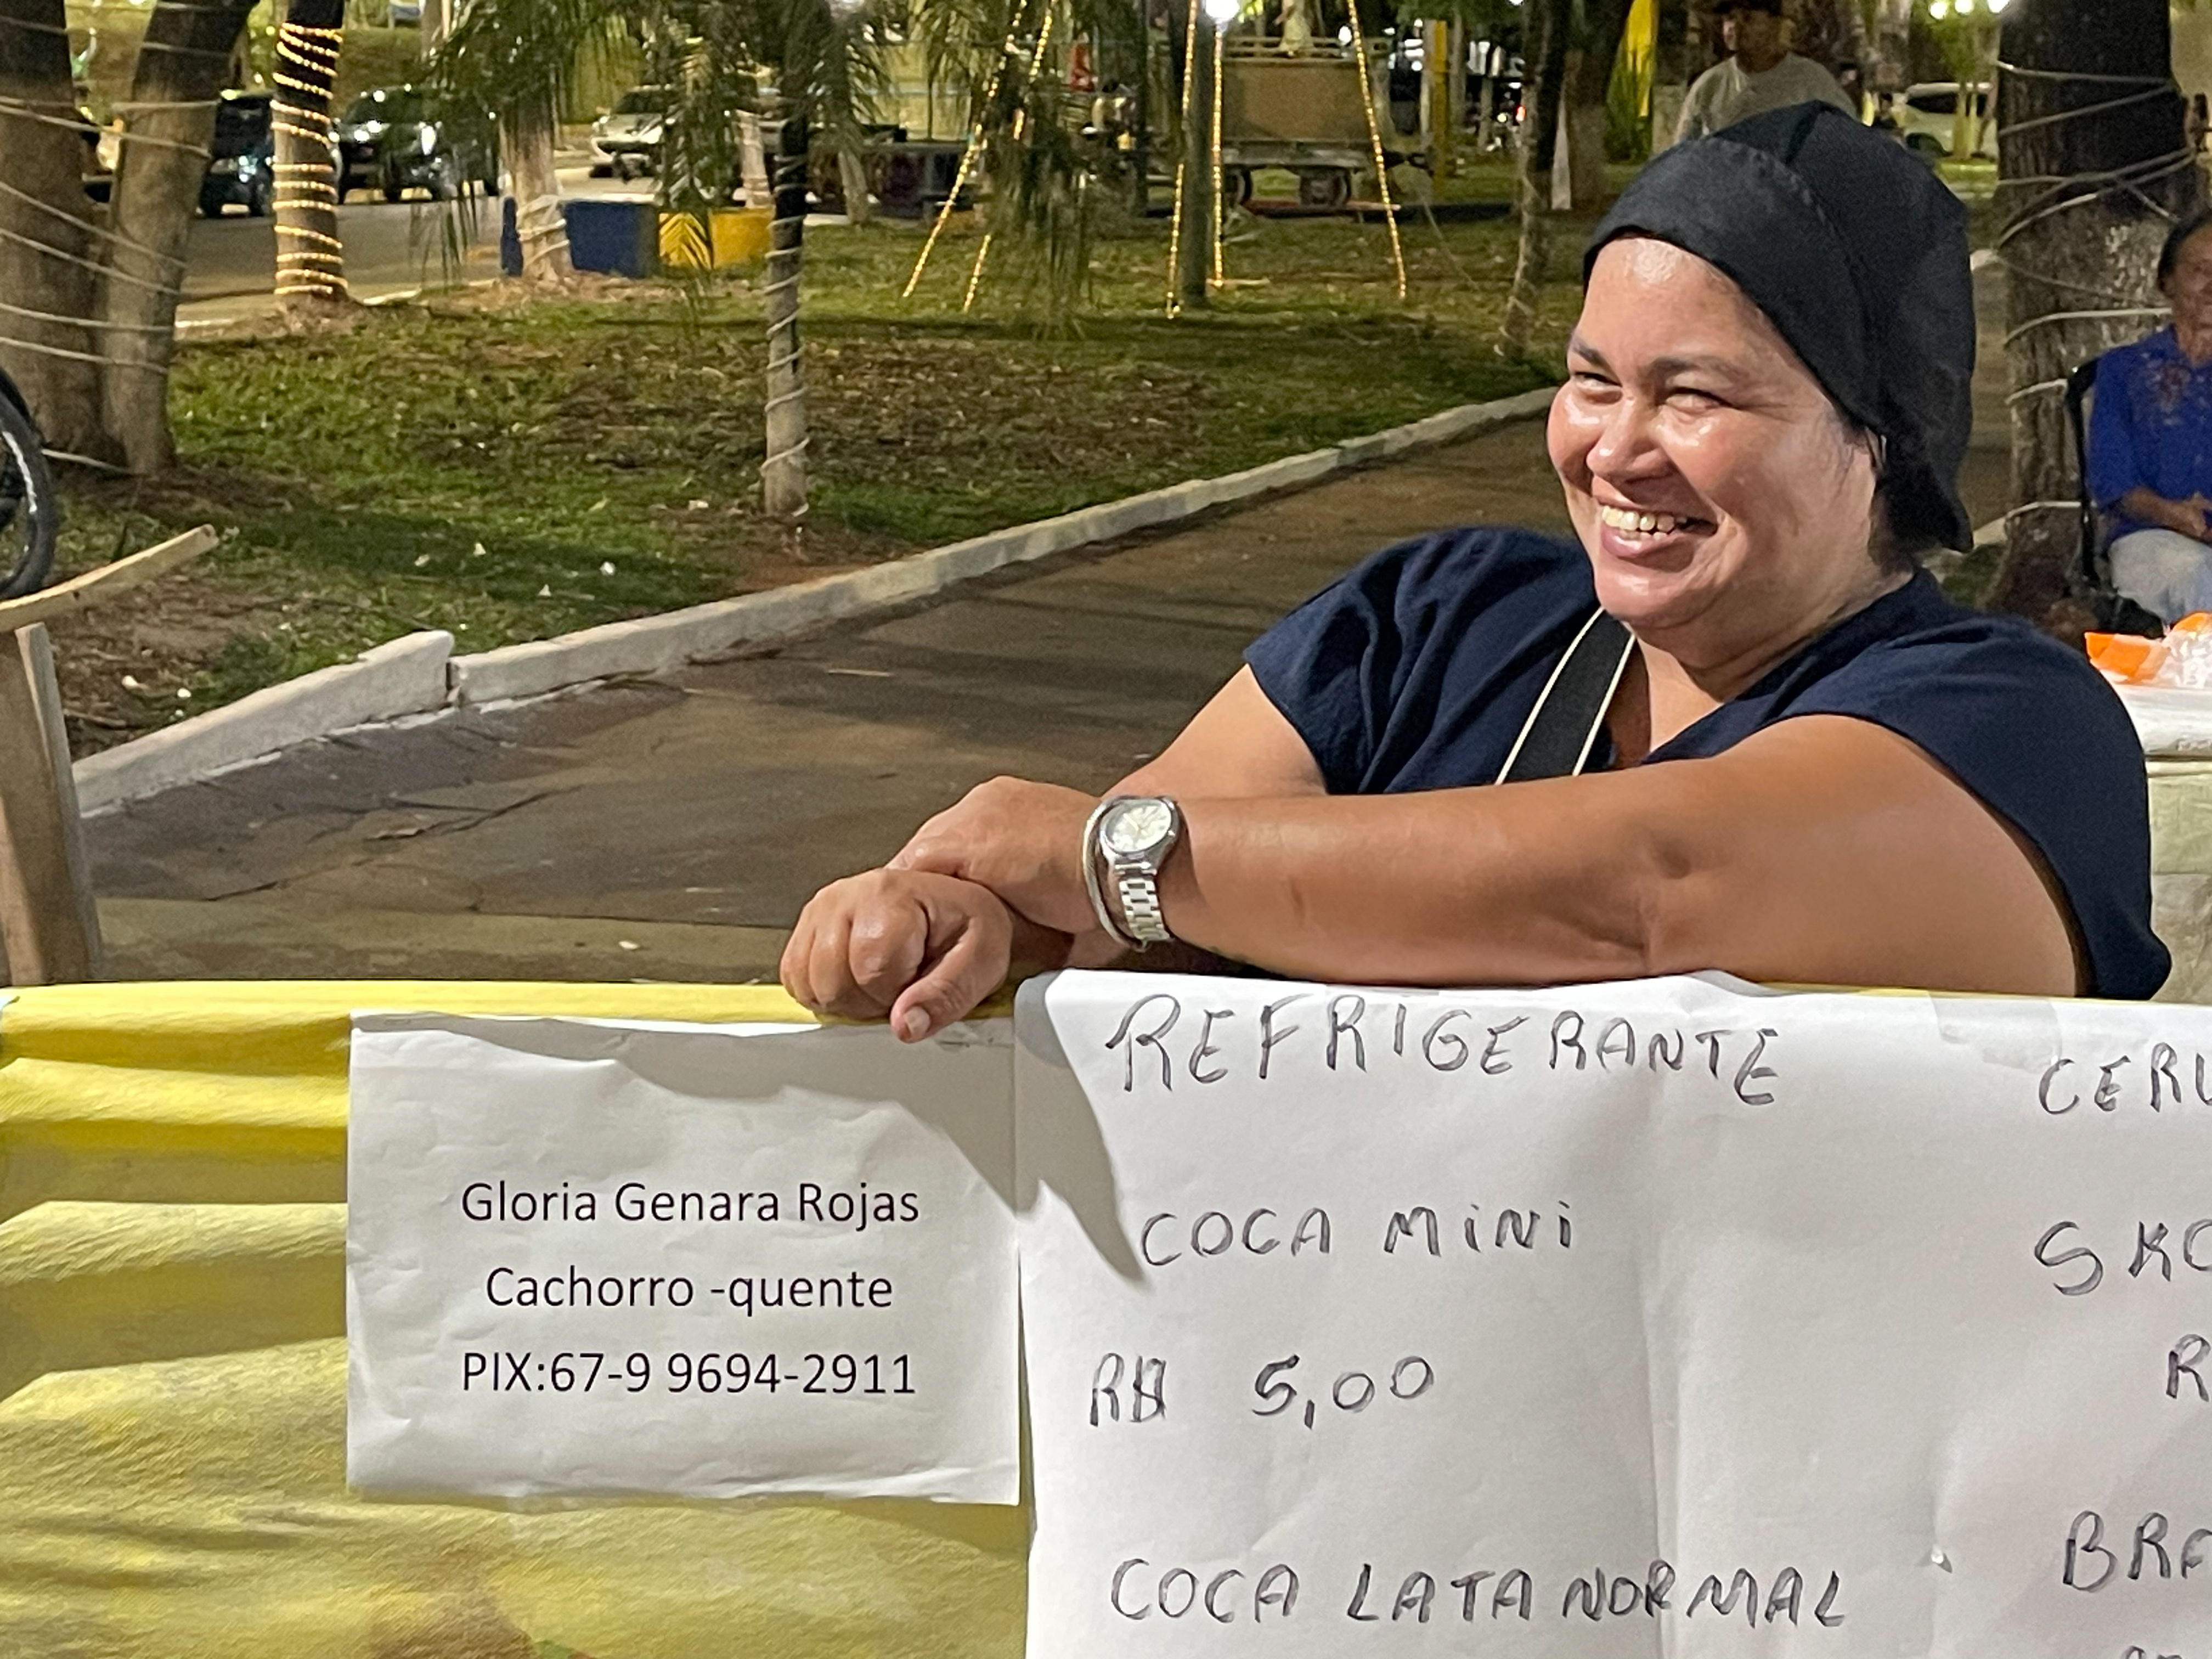 Gloria Genara Rojas
Cachorro -quente
PIX:67-9 9694-2911
REFRIGERANTE
COCA MiNi
R$ 5,00
COCA LATA NORMAL